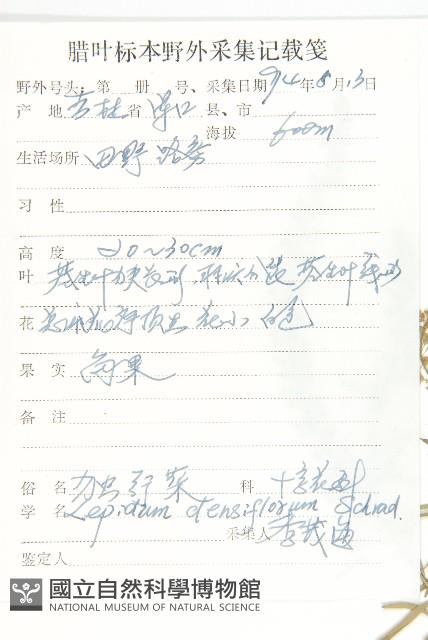 腊叶标本野外采集记载笺
野外号头：第 册 号、采集日期94年8月13日
产 地 吉林省 县、市
海拔 600m
生活场所 田野 路旁
习 性
高 度 20~30cm
叶 基生叶 羽状分裂 茎生叶
花 总状花序顶生 花小 白色
果 实 角果
备 注
俗 名 独行菜 科 十字花科
学 名 Lepidium densiflorum Schrad.
采集人 李茂
鉴定人
國立自然科學博物館
NATIONAL MUSEUM OF NATURAL SCIENCE